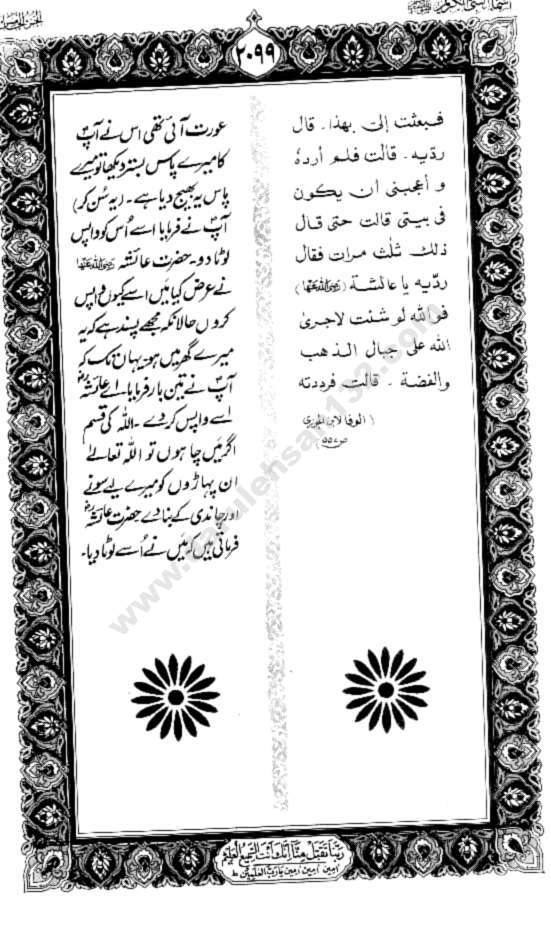 ٢٠٩٩
فبعثت إلى بهذا۔ قال
ردّيه۔ قالت فلم أردهٗ
و أعجبنى ان يكون
فى بيتى قالت حتى قال
ذلك ثلٰث مرات فقال
ردّيه يا عائشة (رضی اللہ عنہا)
فوالله لو شئت لاجرى
الله على جبال الذهب
والفضة۔ قالت فرددته
(الوفا لابن الجوزى
عورت آئی تھی اس نے آپؐ
کا میرے پاس بستر دیکھا تو میرے
پاس یہ بھیج دیا ہے۔ (یہ سُن کر)
آپؐ نے فرمایا اسے اُس کو واپس
لوٹا دو۔ حضرت عائشہ رضی اللہ عنہا
نے عرض کیا میں اسے کیوں واپس
کروں حالانکہ مجھے پسند ہے کہ یہ
میرے گھر میں ہو۔ یہاں تک کہ
آپؐ نے تین بار فرمایا۔ اے عائشہؓ
اسے واپس کر دے۔ اللہ کی قسم
اگر میں چاہوں تو اللہ تعالےٰ
ان پہاڑوں کو میرے لیے سونے
اور چاندی کے بنا دے حضرت عائشہؓ
فرماتی ہیں کہ میں نے اُسے لوٹا دیا۔
ربنا تقبل منا انك انت السميع العليم
امين امين امين يا رب العلمين ط